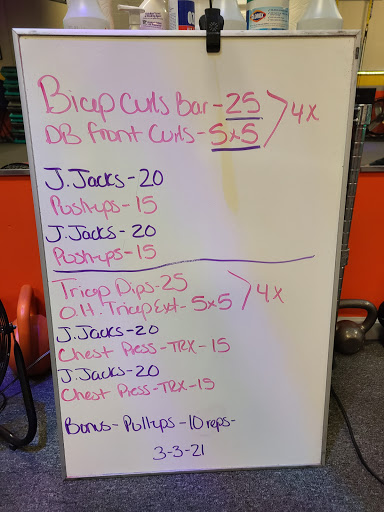 Bicep Curls Bar-25
DB front Curls-5x5
4x
J.Jacks-20
Push-ups-15
J.Jacks-20
Push-ups-15
Tricep Dips-25
O.H. Tricep Ext-5x5
4x
J.Jacks-20
Chest Press-TRX-15
J.Jacks-20
Chest Press-TRX-15
Bonus-Pullups-10 reps-
3-3-21